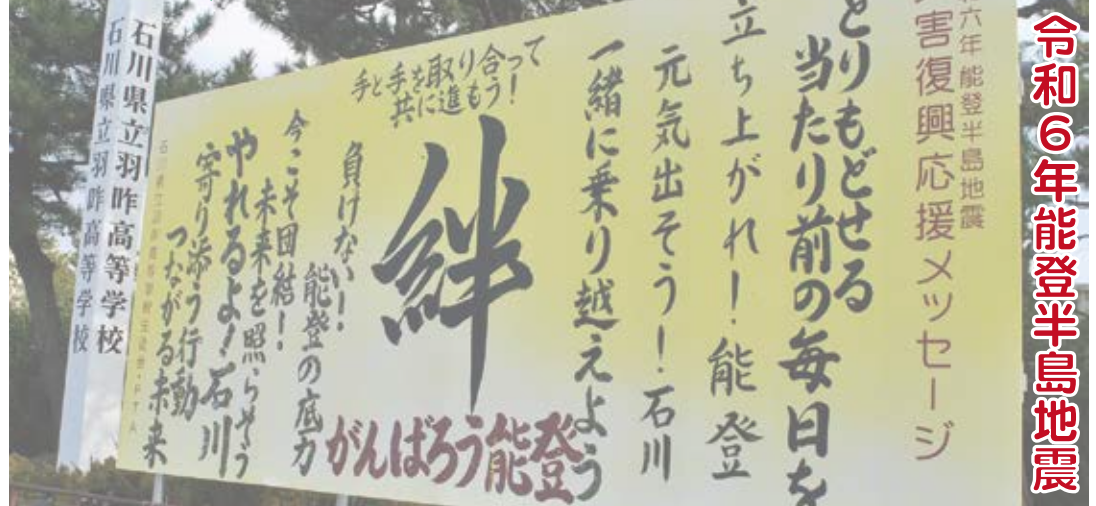 令和6年能登半島地震
六年 能登半島地震
害復興応援メッセージ
とりもどせる
当たり前の毎日を
立ち上がれ！能登
元気出そう！石川
一緒に乗り越えよう
手と手を取り合って
共に進もう！
絆
がんばろう能登
負けない！
能登の底力
今こそ団結！
未来を照らそう
やれるよ！石川
寄り添う行動
つながる未来
石川県立羽咋高等学校
石川県立羽咋高等学校